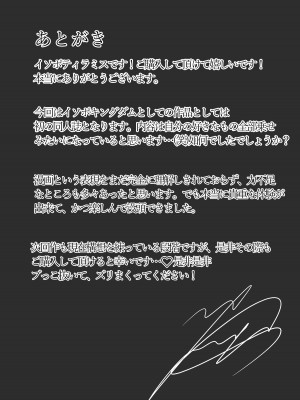 あとがき
イソポティラミスです！ご購入して頂けて嬉しいです！
本当にありがとうございます。
今回はイソポキングダムとしての作品としては
初の同人誌となります。内容は自分の好きなもの全部乗せ
みたいになっていると思います…(笑)如何でしたでしょうか？
漫画という表現をまだ完全に理解しきれておらず、力不足
なところも多々あったと思います。でも本当に貴重な体験が
出来て、かつ楽しんで
次回作も現在構想を練っている段階ですが、是非その際も
ご購入して頂けると幸いです…♡是非是非
ブっこ抜いて、ズリまくってください！